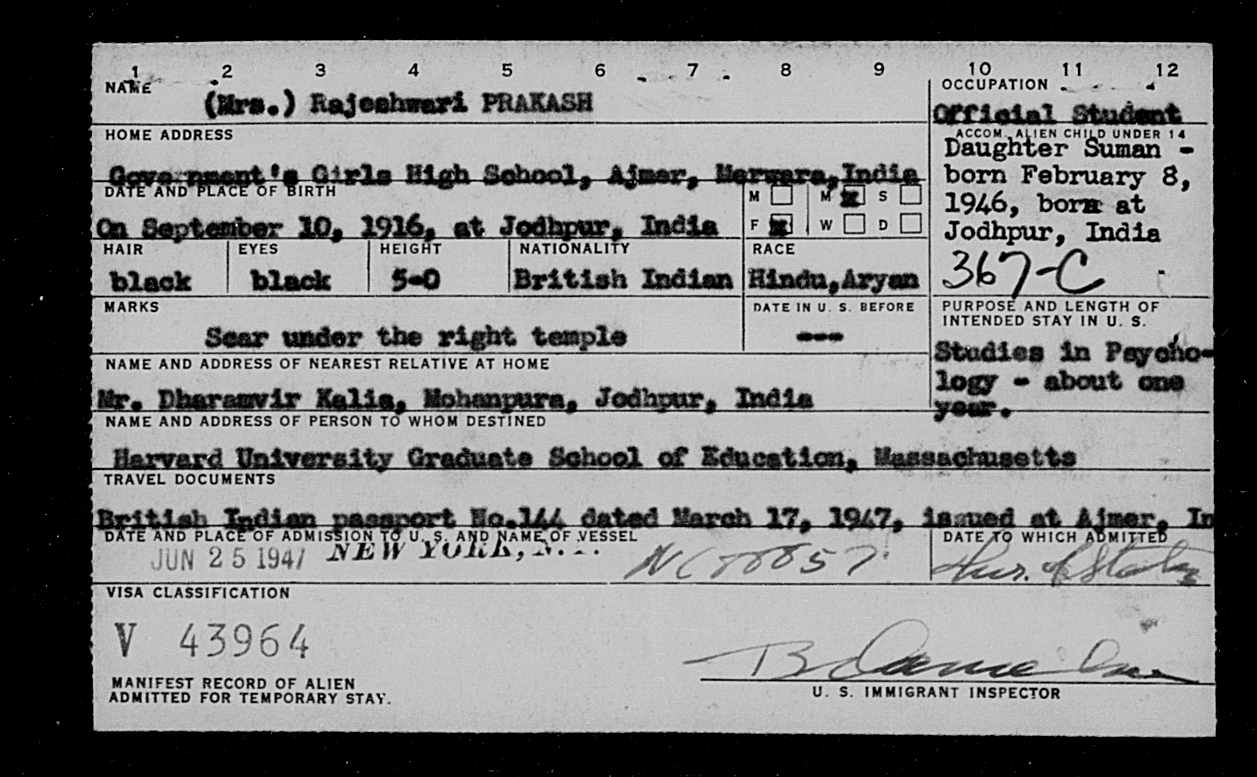 1 2 3 4 5 6 7 8 9 10 11 12
NAME
(Mrs.) Rajeshwari PRAKASH
OCCUPATION
Official Student
HOME ADDRESS
Government's Girls High School, Ajmer, Merwara, India
ACCOM. ALIEN CHILD UNDER 14
Daughter Suman -
born February 8,
1946, born at
Jodhpur, India
367-C
DATE AND PLACE OF BIRTH
On September 10, 1916, at Jodhpur, India
M M x S
F x W D
HAIR EYES HEIGHT NATIONALITY RACE
black black 5-0 British Indian Hindu,Aryan
MARKS
Scar under the right temple
DATE IN U. S. BEFORE
---
PURPOSE AND LENGTH OF
INTENDED STAY IN U. S.
Studies in Psycho-
logy - about one
year.
NAME AND ADDRESS OF NEAREST RELATIVE AT HOME
Mr. Dharamvir Kalia, Mohanpura, Jodhpur, India
NAME AND ADDRESS OF PERSON TO WHOM DESTINED
Harvard University Graduate School of Education, Massachusetts
TRAVEL DOCUMENTS
British Indian passport No.144 dated March 17, 1947, issued at Ajmer, In
DATE AND PLACE OF ADMISSION TO U. S. AND NAME OF VESSEL
JUN 25 1947 NEW YORK, N.Y.
DATE TO WHICH ADMITTED
VISA CLASSIFICATION
V 43964
MANIFEST RECORD OF ALIEN
ADMITTED FOR TEMPORARY STAY.
U. S. IMMIGRANT INSPECTOR